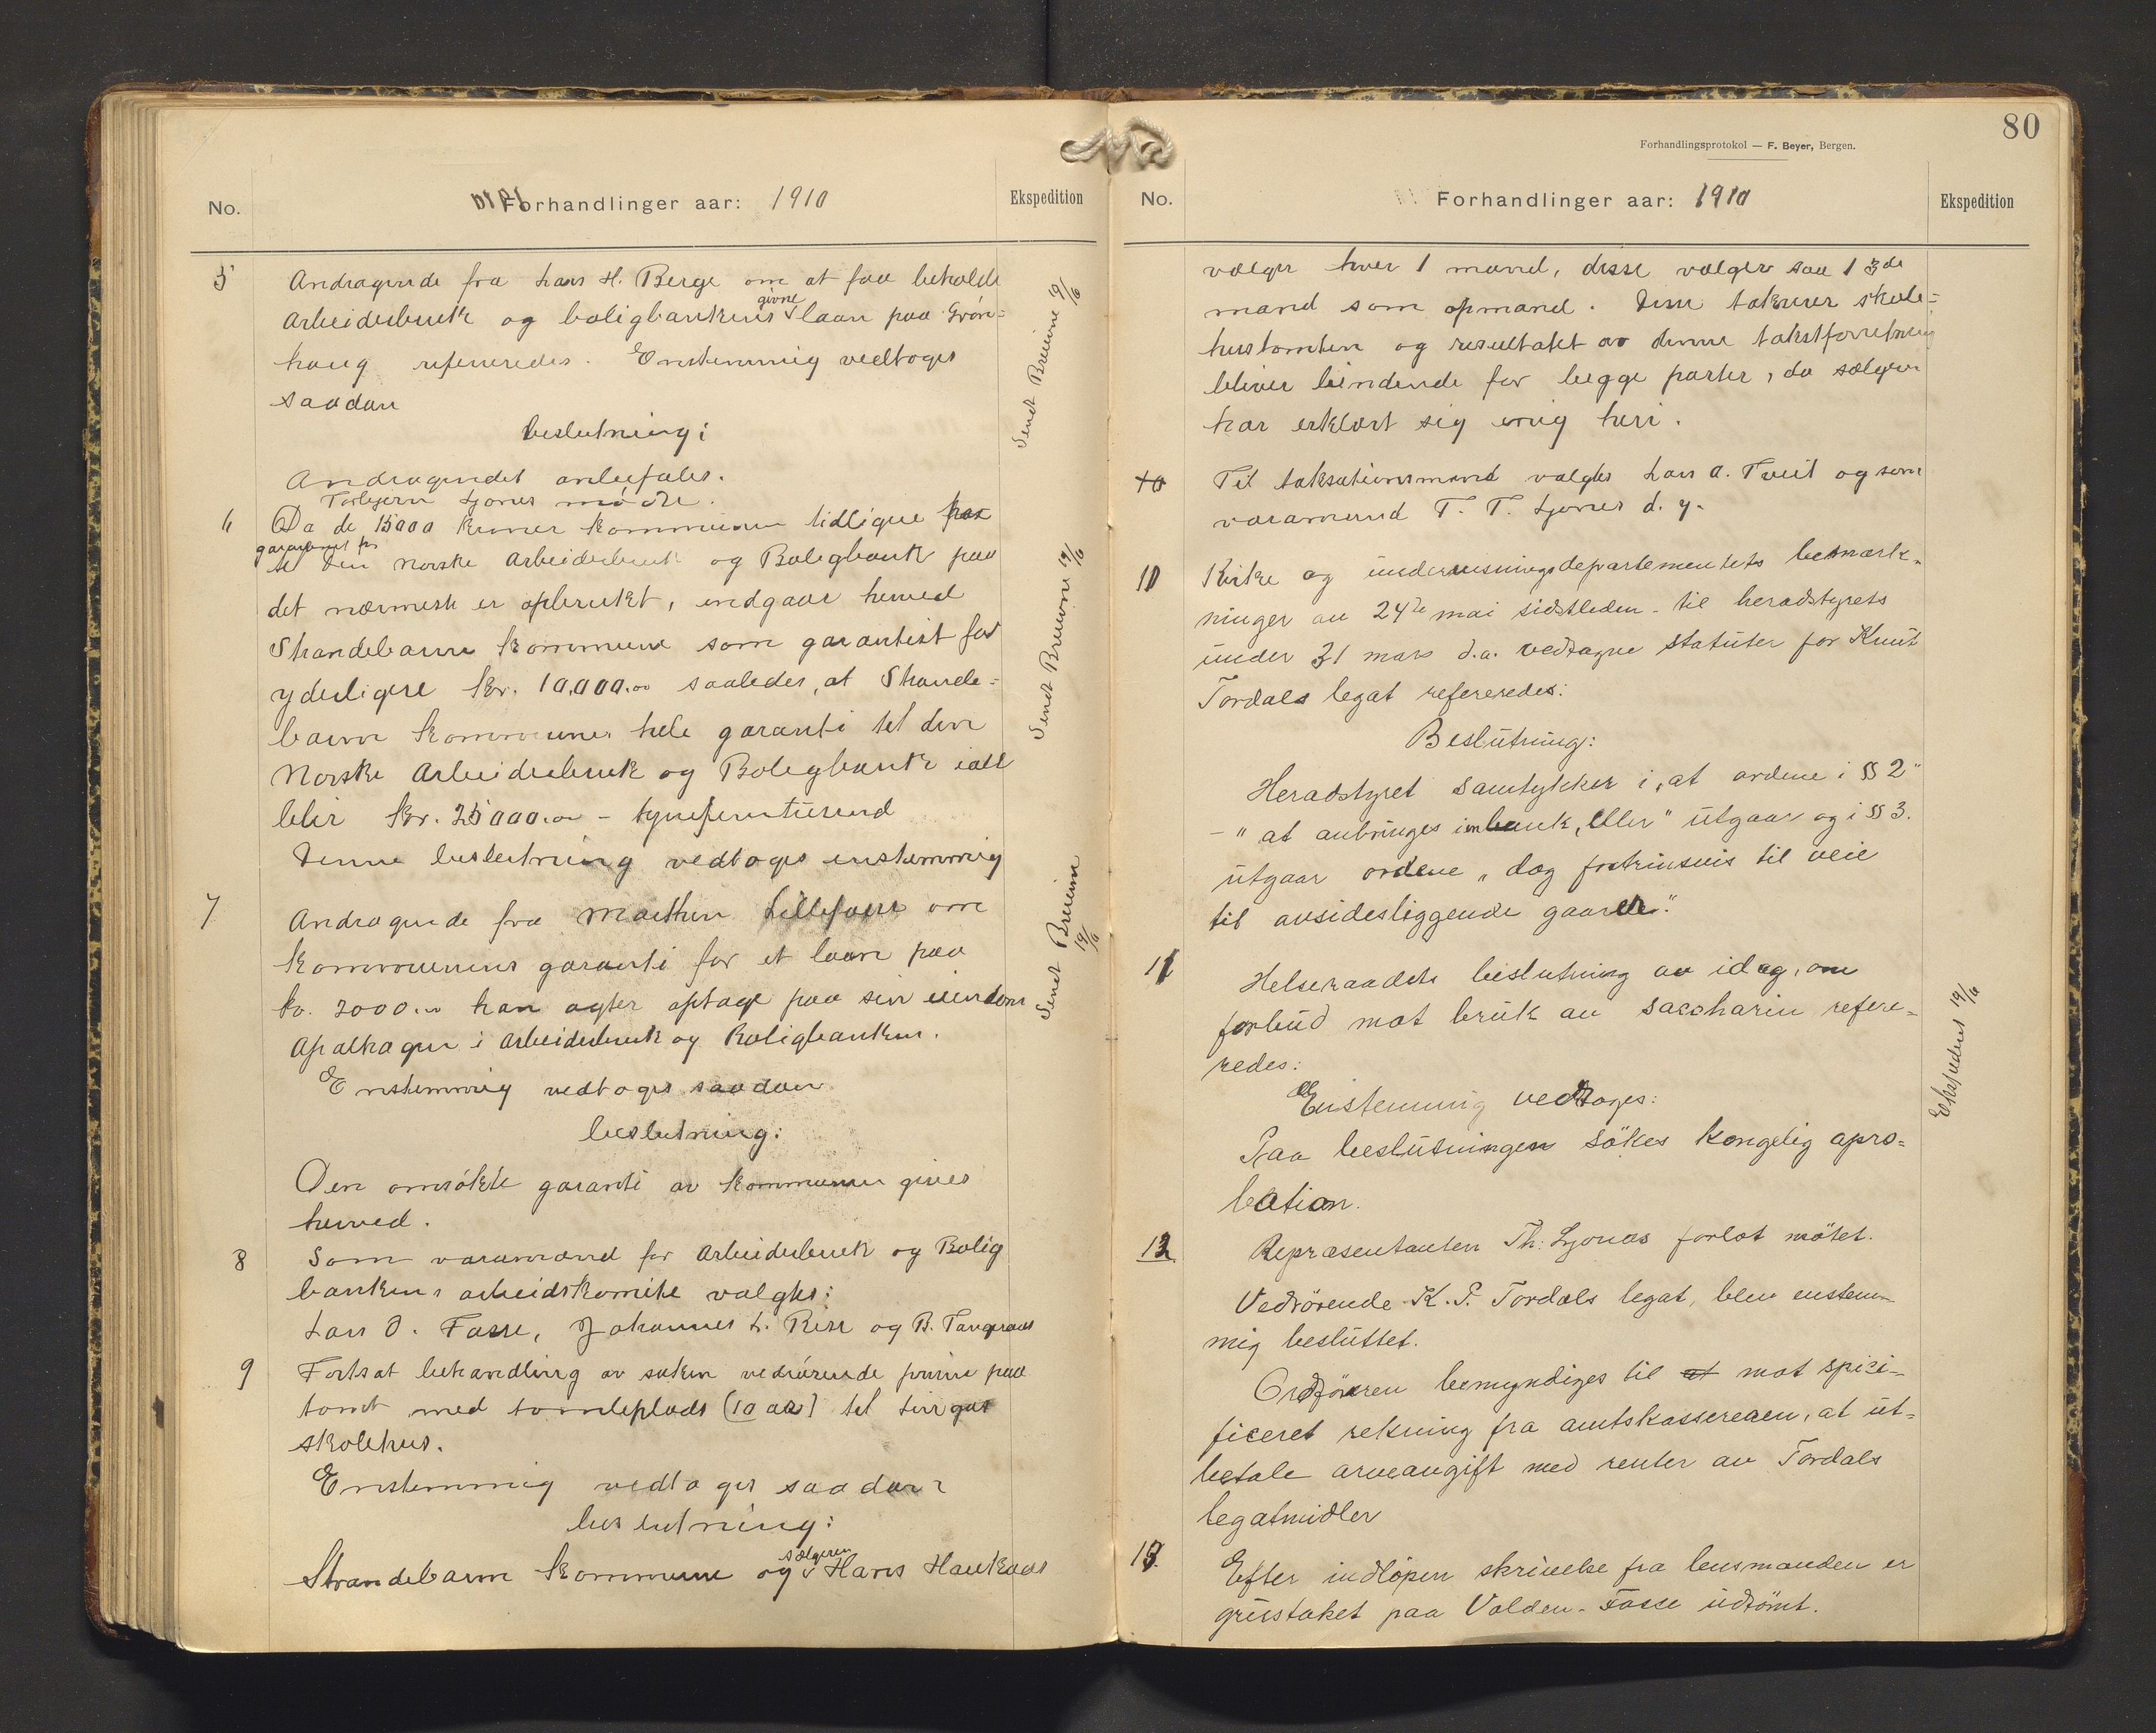 No.
Forhandlinger aar: 1910
Ekspedition
5
Andragende fra Lars H. Berge om at faa beholde
Arbeiderbruk og boligbankens givne laan paa Grøn=
haug refereredes. Enstemmig vedtoges
saadan
beslutning:
Andragendet anbefales.
Torbjørn Ljones møder.
Sendt Breivine 19/6
6
Da de 15000 kroner kommunen tidligere har
garantert for
til den norske Arbeiderbruk og Boligbank paa
det nærmeste er opbrukt, indgaar herved
Strandebarm kommune som garantist for
yderligere kr. 10,000.00 saaledes, at Strande=
barm kommunes hele garanti til den
Norske Arbeiderbruk og Boligbank ialt
blir kr. 25000.00 - tyvefemtusend
Denne beslutning vedtoges enstemmig
Sendt Breivine 19/6
7
Andragende fra Marthin Lillefosse om
kommunens garanti for et laan paa
kr. 2000.00 han agter optage paa sin eiendom
Apalhagen i Arbeiderbruk og Boligbanken.
Enstemmig vedtoges saadan
beslutning:
Den omsøkte garanti av kommunen gives
herved.
Sendt Breivine 19/6
8
Som varamænd for Arbeiderbruk og Bolig
bankens arbeidskomite valgtes:
Lars O. Fosse, Johannes L. Ress og B. Tangeraas
9
Fortsat behandling av saken vedrørende prisen paa
tomt med tomteplads (10 ar) til
skolehus.
Enstemmig vedtoges saadan
beslutning:
Strandebarm kommune og sælgeren Hans Haukaas
80
Forhandlingsprotokol — F. Beyer, Bergen.
No.
Forhandlinger aar: 1910
Ekspedition
vælger hver 1 mand, disse vælger saa 1 3de
mand som opmand. Disse takserer skole=
hustomten og resultatet av denne takstforretning
bliver bindende for begge parter, da sælgeren
har erklært sig enig heri.
10
Til taksationsmand valgtes Lars A. Tveit og som
varamænd T. T. Ljones d. y.
10
Kirke og undervisningsdepartementets bemærk-
ninger av 24de mai sidstleden - til heradstyrets
under 31 mars d.a. vedtagne statuter for Knut
Tordals legat refereredes:
Beslutning:
Heradstyret samtykker i, at ordene i §§ 2
- "at anbringes i en bank, eller" utgaar og i §§ 3.
utgaar ordene "dog fortrinsvis til veie
til avsidesliggende gaarder".
11
Helseraadets beslutning av idag, om
forbud mot bruk av saccharin refere-
redes:
Enstemmig vedtages:
Paa beslutningen søkes kongelig apro=
bation.
Ekspedert 19/6
12
Repræsentanten Th: Ljonas forlot møtet.
Vedrørende K. P. Tordals legat, blev enstem-
mig besluttet.
Ordføreren bemyndiges til at mot spesi-
ficeret rekning fra amtskassereren, at ut=
betale arveavgift med renter av Tordals
legatmidler
13.
Efter indløpen skrivelse fra lensmanden er
grustaket paa Volden-Fosse uttømt.